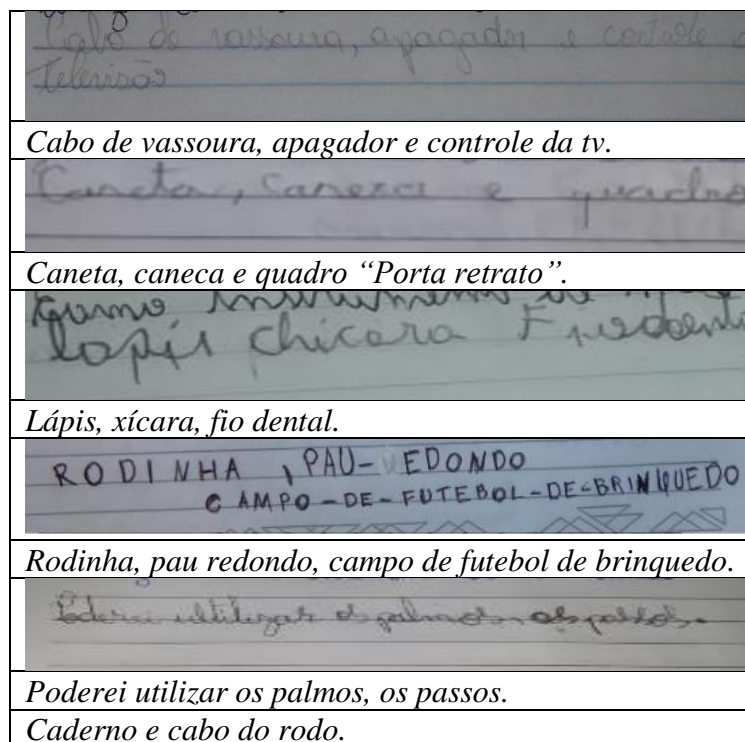 Cabo de vassoura, apagador e controle d
Televisão
Cabo de vassoura, apagador e controle da tv.
Caneta, caneca e quadro
Caneta, caneca e quadro “Porta retrato”.
como instrumento de
lapis chicara
Lápis, xícara, fio dental.
RODINHA , PAU- EDONDO
CAMPO-DE-FUTEBOL-DE-BRINQUEDO
Rodinha, pau redondo, campo de futebol de brinquedo.
Poderei ultilizar os palmos os passos.
Poderei utilizar os palmos, os passos.
Caderno e cabo do rodo.